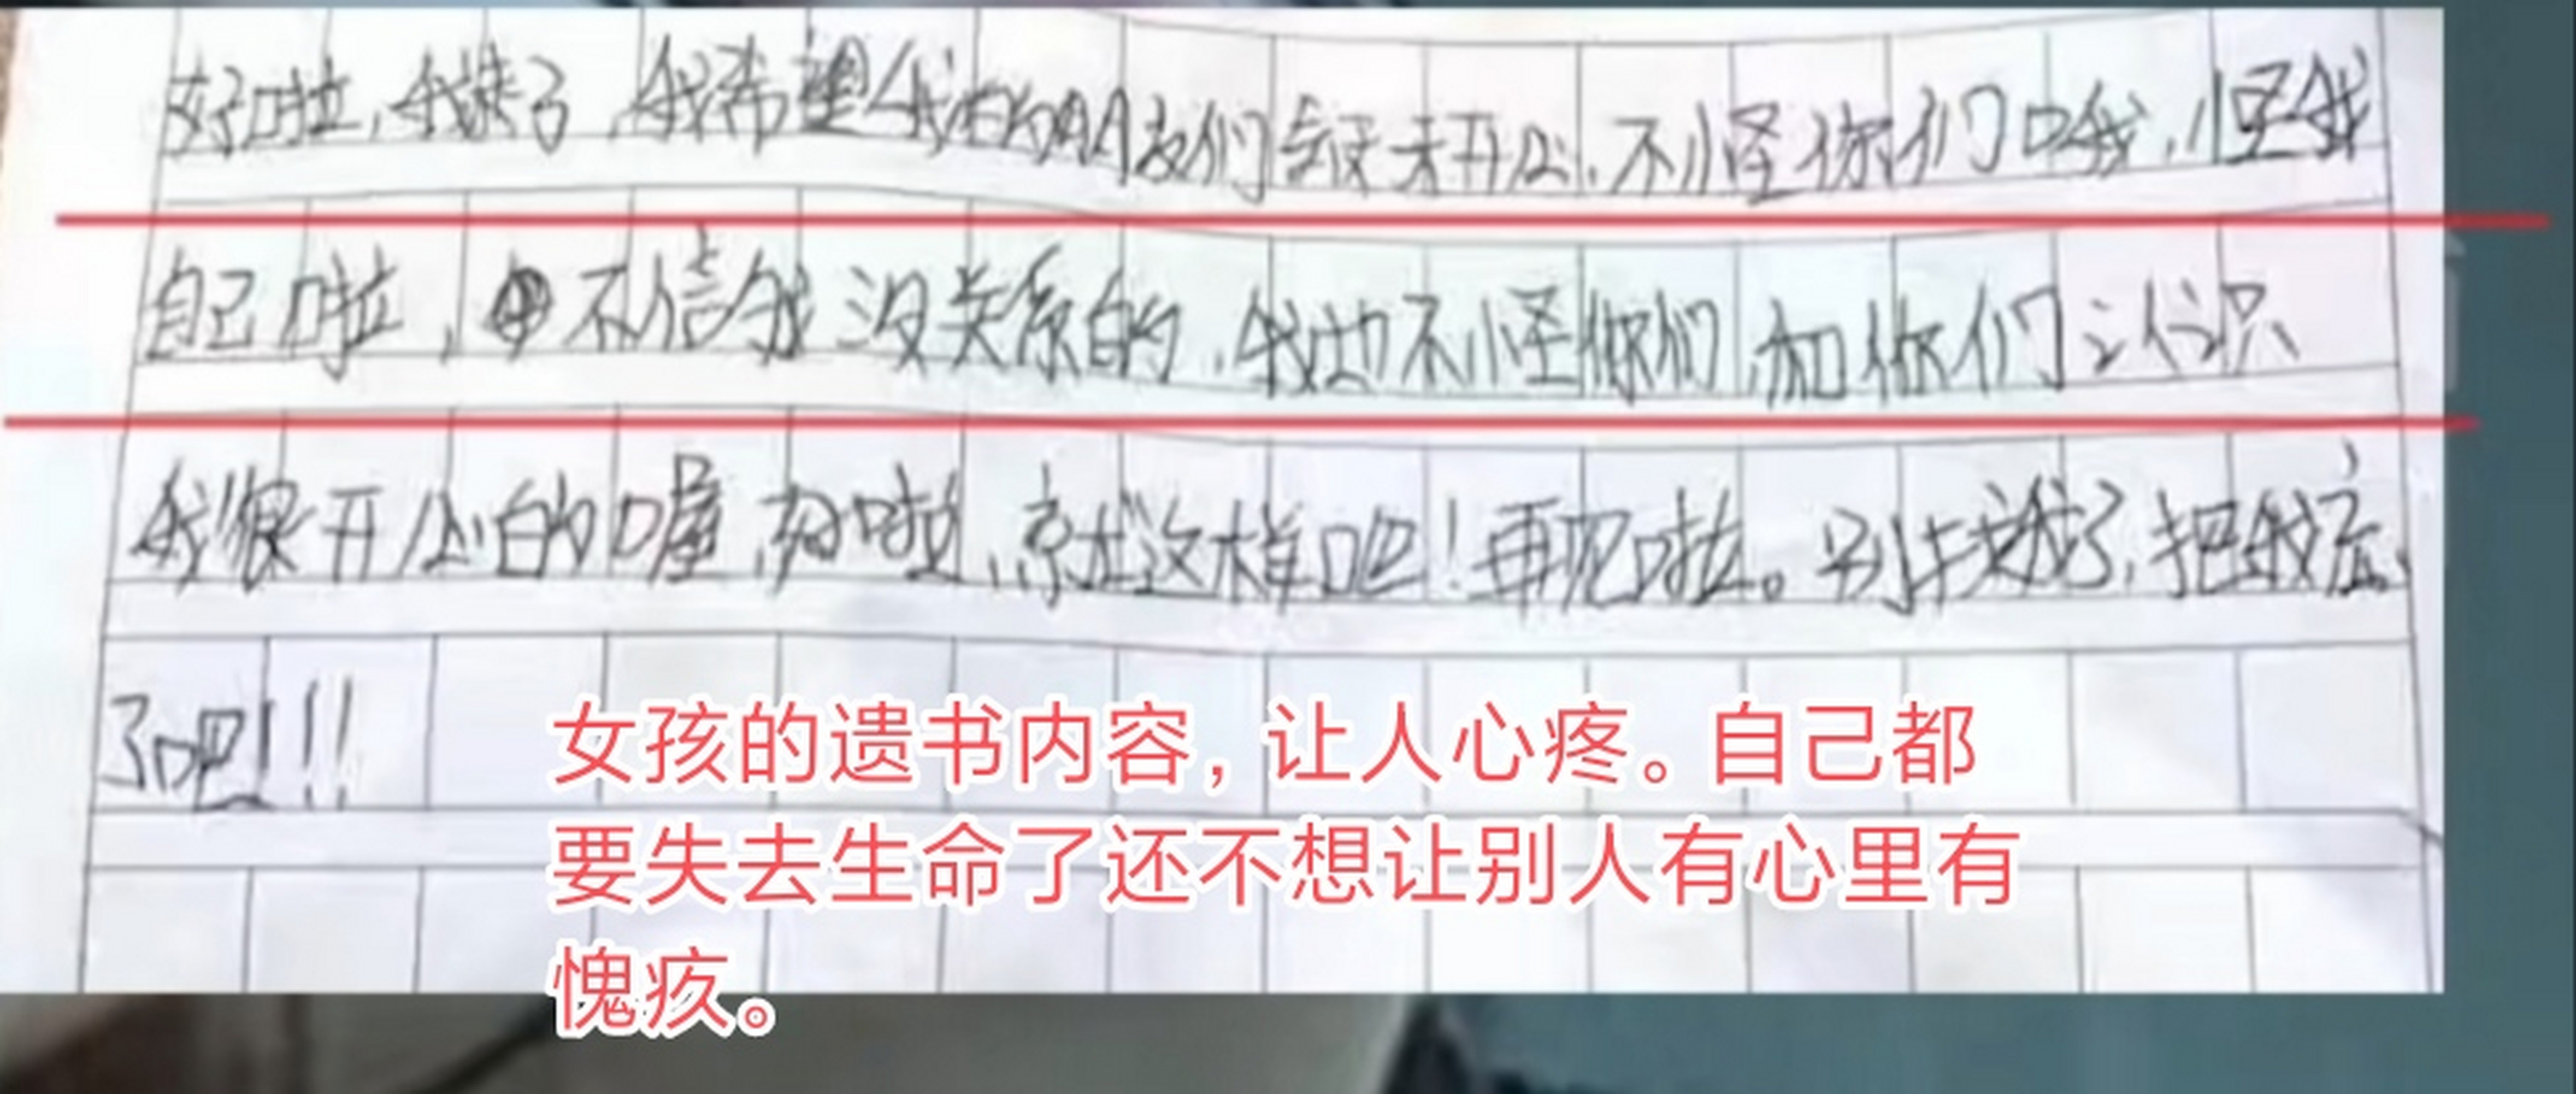 好啦,我走了,我希望我的朋友们每天开心,不怪你们哦,怪我
自己啦,不信我没关系的,我也不怪你们,和你们认识
我很开心的喔,好啦,就这样吧!再见啦。别找我了,把我忘
了吧!!!
女孩的遗书内容,让人心疼。自己都
要失去生命了还不想让别人有心里有
愧疚。